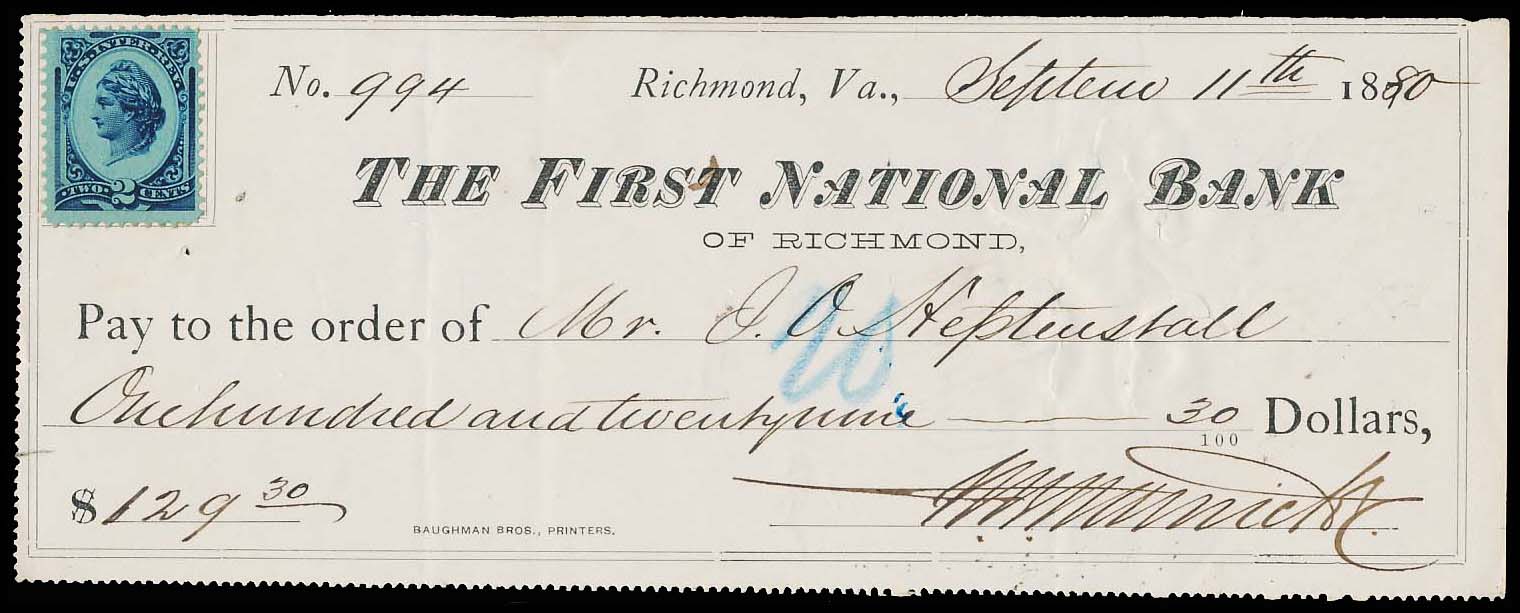 U.S. INTER. REV.
TWO 2 CENTS
No. 994 Richmond, Va., Septem 11th 1880
THE FIRST NATIONAL BANK
OF RICHMOND,
Pay to the order of Mr. J. O. Heptinstall
One hundred and twenty nine 30/100 Dollars,
$129 30
BAUGHMAN BROS., PRINTERS.